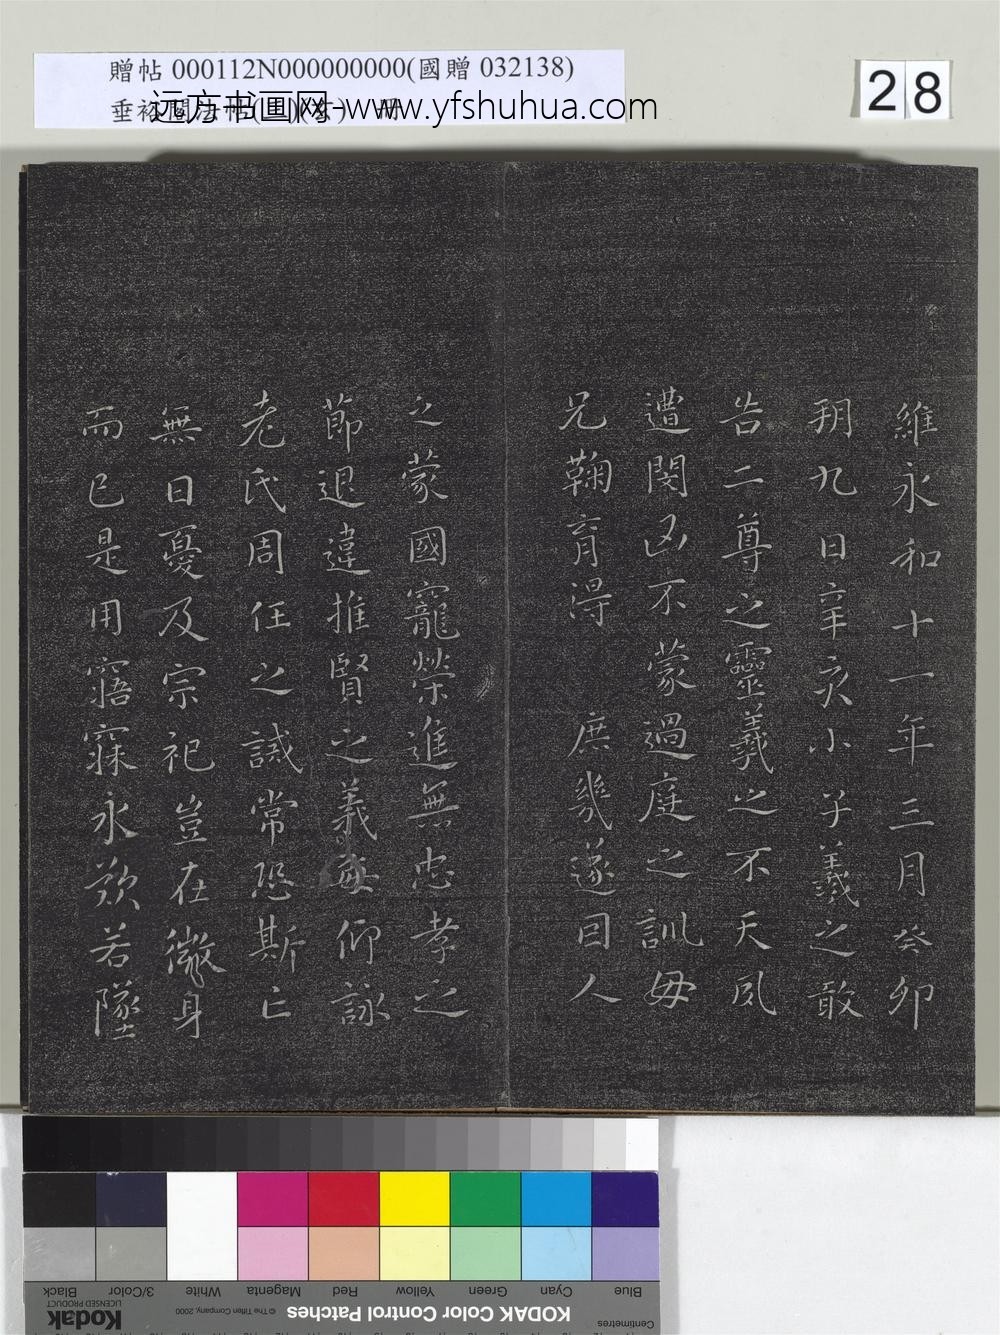 贈帖 000112N000000000(國贈 032138)
远方书画网 www.yfshuhua.com
28
維永和十一年三月癸卯
朔九日辛亥小子羲之敢
告二尊之靈羲之不天夙
遭閔凶不蒙過庭之訓毋
兄鞠育得 庶幾遂因人
之蒙國寵榮進無忠孝之
節退違推賢之義每仰詠
老氏周任之誡常恐斯亡
無日憂及宗祀豈在微身
而已是用寤寐永歎若墜
Blue
Cyan
Green
Yellow
Red
Magenta
White
3/Color
Black
Centimetres
KODAK Color Control Patches
© The Tiffen Company, 2000
Kodak
LICENSED PRODUCT